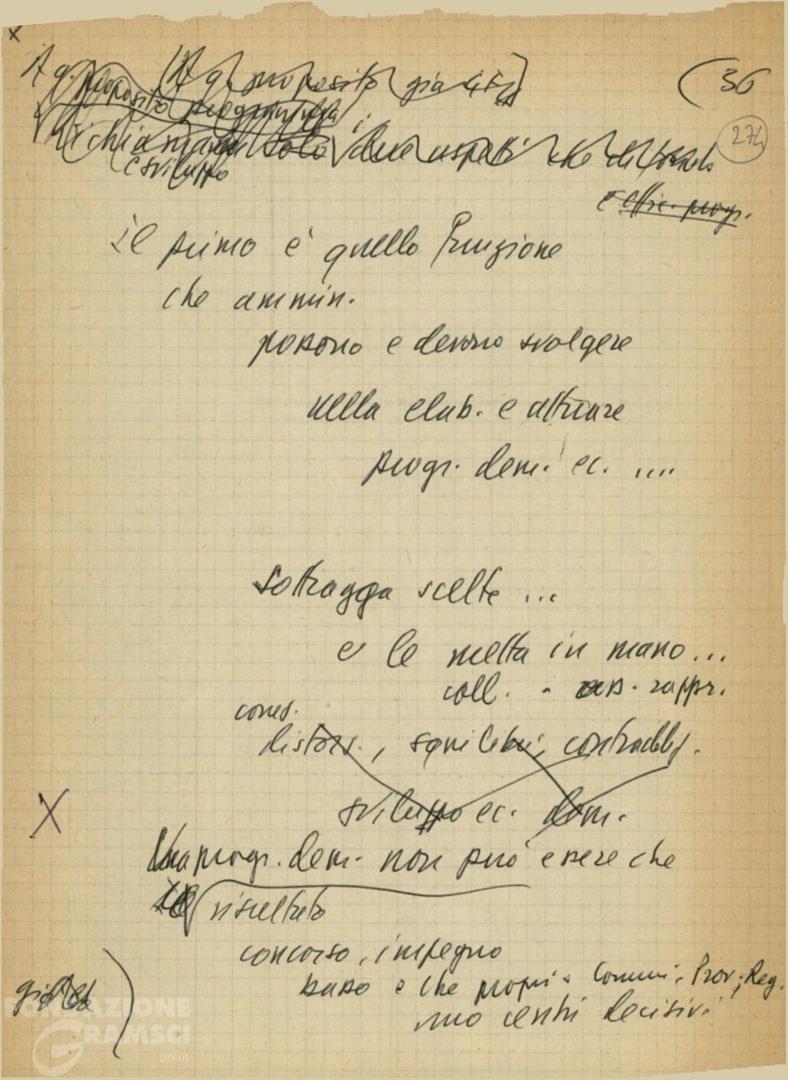 x
A q. (A q. proposito già
proposito programma
(36
274
Richiamare solo due aspetti che
e sviluppo
e effic. progr.
il primo è quello funzione
che ammin.
possono e devono svolgere
nella elab. e attuare
progr. dem. ec. ....
sottragga scelte ...
e le metta in mano...
coll. - ass. rappr.
cones.
distors., squilibri, contradd.
sviluppo ec. dem.
X
Una progr. dem. non può essere che
risultato
concorso, impegno
basso e che propri Comuni, Prov., Reg.
sono centri decisivi
FONDAZIONE
GRAMSCI
onlus